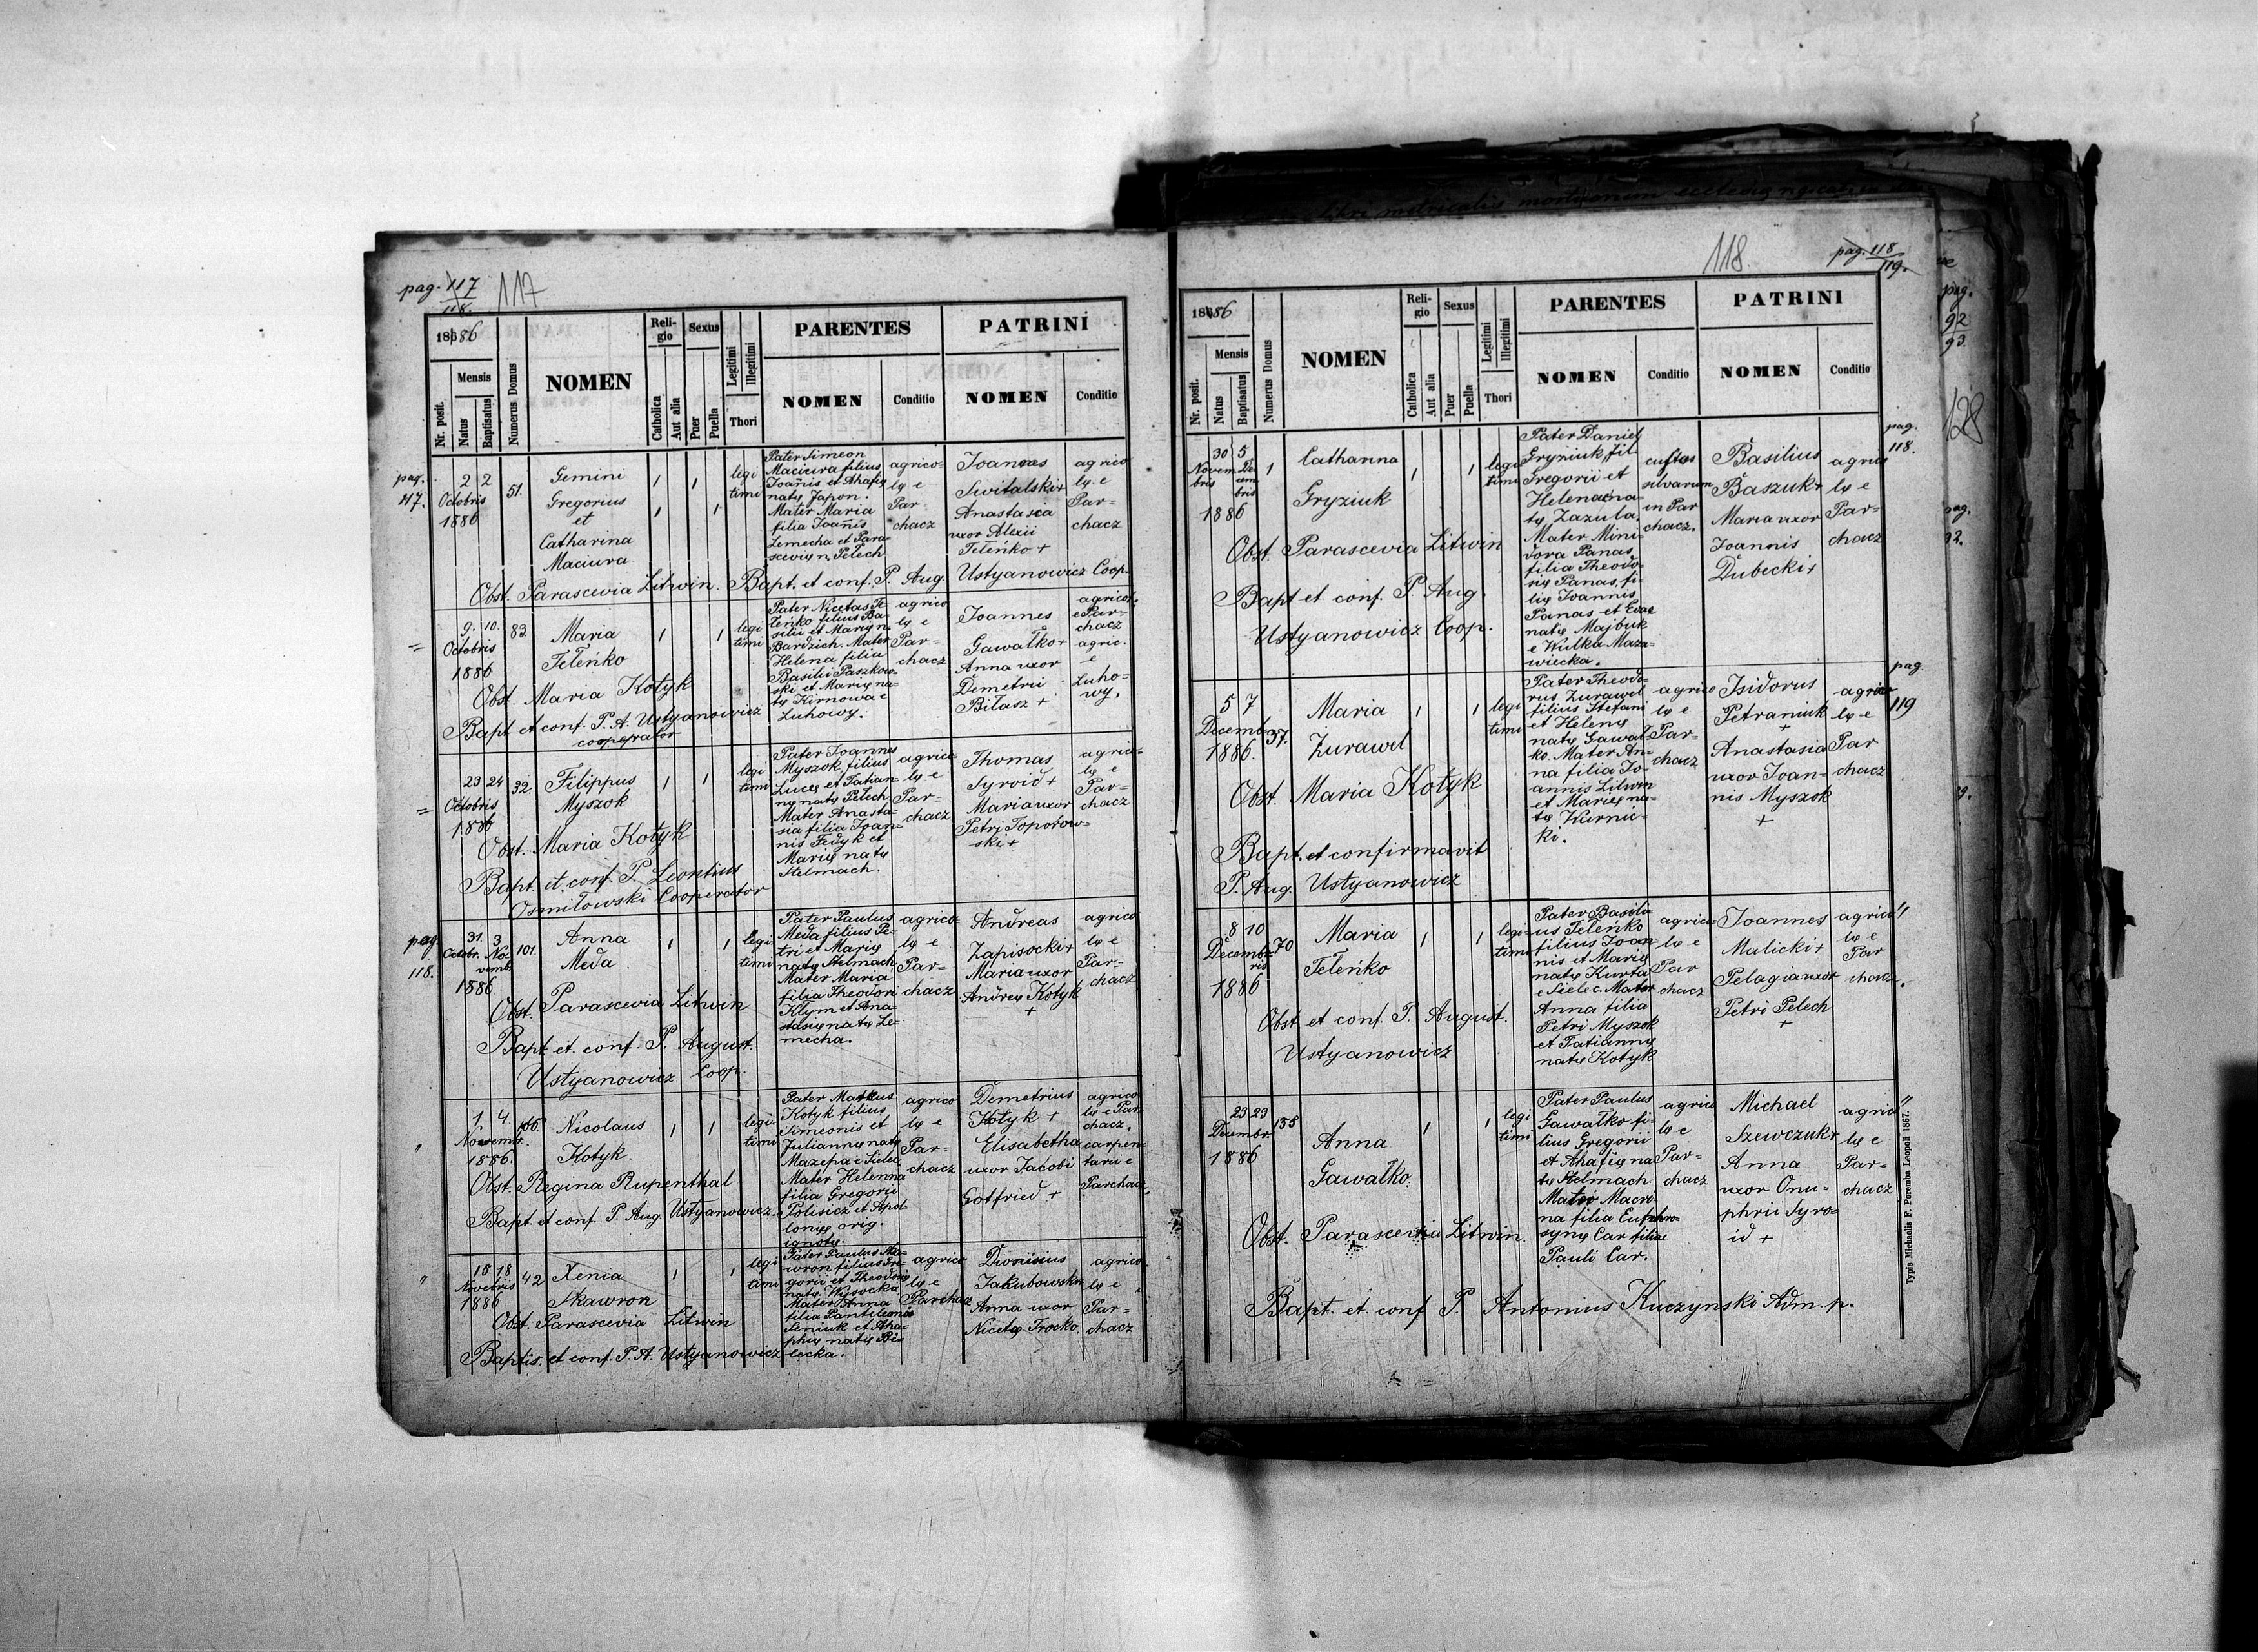 pag. 117
118.
117
1886
Reli-
gio
Sexus
Legitimi
Illegitimi
PARENTES
PATRINI
Mensis
Nr. posit.
Natus
Baptisatus
Numerus Domus
NOMEN
Catholica
Aut alia
Puer
Puella
Thori
NOMEN
Conditio
NOMEN
Conditio
pag.
117.
2 2
Octobris
1886
51.
Gemini
Gregorius
et
Catharina
Maciura
1 1
1 1
legi
timi
Pater Simeon
Maciura filius
Joannis et Ahafię
natę Japon.
Mater Maria
filia Joannis
Lemecha et Para-
scevię n. Pelech
agrico-
lę e
Par-
chacz
Joannes
Switalski +
Anastasia
uxor Alexii
Teleńko +
agrico
lę e
Par-
chacz
Obst. Parascevia Litwin. Bapt. et conf. P. Aug. Ustyanowicz Coop.
=
9. 10.
Octobris
1886
83
Maria
Teleńko
1 1
legi
timi
Pater Nicetas Te-
leńko filius Ba-
silii et Marię n.
Bardzich. Mater
Helena filia
Basilii Paszkow-
ski et Marię na-
tę Kirnowa e
Luhowy.
agrico
lę e
Par-
chacz
Joannes
Gawałko +
Anna uxor
Demetrii
Biłasz +
agricol.
e Par-
chacz
agric.
e
Luho-
wy.
Obst. Maria Kotyk
Bapt et conf. P. A. Ustyanowicz
cooperator
=
23 24
Octobris
1886
32.
Filippus
Myszok
1 1
legi
timi
Pater Joannes
Myszok, filius
Lucę et Tatian-
nę natę Pelech
Mater Anasta-
sia filia Joan-
nis Fedyk et
Marię natę
Stelmach.
agrico-
lę e
Par-
chacz
Thomas
Syroid +
Maria uxor
Petri Toporow-
ski +
agrico-
lę e
Par-
chacz
Obst. Maria Kotyk
Bapt. et. conf. P. Leontius
Osmiłowski Cooperator
pag.
118.
31. 3
Octobr. No-
vemb.
1886
101.
Anna
Meda
1 1
legi
timi
Pater Paulus
Meda filius Pe-
tri et Marię
natę Stelmach
Mater Maria
filia Theodori
Klym et Ana-
stasię natę Le-
mecha.
agrico-
lę e
Par-
chacz
Andreas
Zapisocki +
Maria uxor
Andreę Kotyk
+
agrico
lę e
Par-
chacz
Obst. Parascevia Litwin
Bapt et. conf. P. August.
Ustyanowicz Coop.
"
1. 4.
Novemb.
1886.
Nicolaus
Kotyk.
1 1
legi-
timi
Kotyk filius
Simeonis et
Juliannę natę
Mazepa e Sielec
Mater Helenna
filia Gregorii
Polisicz et Apol
lonię orig.
ignotę.
agrico
lę e
Par-
chacz
Demetrius
Kotyk +
Elisabetha
uxor Jacobi
Gotfried +
agrico
lę e Par
chacz.
carpen-
tarii e
Parchacz.
Obst. Regina Rupenthal
Bapt et conf. P. Aug. Ustyanowicz.
"
15 18
Novebris
1886
42
Xenia
Skawron
1 1
legi
timi
Pater Paulus Ska-
wron filius Gre-
gorii et Theodosię
natę Wysocka
Mater Anna
filia Pantileonis
Seniuk et Aha-
phię natię Bi-
lecka.
agrico
lę e
Parchacz
Dionisius
Jakubowski
Anna uxor
Nicetę Trocko.
agrico-
lę e
Par-
chacz
Obst. Parascevia Litwin
Baptis. et conf. P. A. Ustyanowicz
118.
pag. 118
119.
1886
Reli-
gio
Sexus
Legitimi
Illegitimi
PARENTES
PATRINI
Mensis
Nr. posit.
Natus
Baptisatus
Numerus Domus
NOMEN
Catholica
Aut alia
Puer
Puella
Thori
NOMEN
Conditio
NOMEN
Conditio
pag.
118.
30 5
Novem- De
bris cem-
bris
1886
1
Catharina
Gryziuk
1 1
legi
timi
Pater Daniel
Gryziuk fil-
Gregorii et
Helenae na-
tę Zazula.
Mater Mini-
dora Panas
filia Theodo-
się Panas, fi-
lię Joannis
Panas et Evae
natę Majbuk
e Wulka Maza-
wiecka.
custos
silvarum
in Par
chacz.
Basilius
Baszuk +
Maria uxor
Joannis
Dubecki +
agrico
lę e
Par-
chacz
Obst. Parascevia Litwin
Bapt et conf. P. Aug.
Ustyanowicz Coop.
pag.
119
5 7
Decemb.
1886.
37.
Maria
Zurawel
1 1
legi
timi
Pater Theodo-
rus Zurawel
filius Stefani
et Helenę
natę Gawał-
ko. Mater An-
na filia Jo-
annis Litwin
et Marię na-
tę Kurnic-
ki.
agrico
lę e
Par-
chacz
Isidorus
Petraniuk
+
Anastasia
uxor Joan-
nis Myszok
+
agrico
lę e
Par
chacz
Obst. Maria Kotyk
Bapt. et confirmavit
P. Aug. Ustyanowicz
"
8 10
Decemb-
ris
1886
70
Maria
Teleńko
1 1
legi-
timi
Pater Basili-
us Teleńko
filius Joan-
nis et Marię
natę Kurta
e Sielec. Mater
Anna filia
Petri Myszok
et Tatiannę
natę Kotyk
agrico-
lę e
Par
chacz
Joannes
Malicki +
Pelagia uxor
Petri Pelech
+
agrico
lę e
Par
chacz.
Obst et conf. P. August.
Ustyanowicz
"
23 23
Decembr.
1886
135
Anna
Gawałko.
1 1
legi
timi
Pater Paulus
Gawałko fi-
lius Gregorii
et Ahafię na
tę Stelmach
Mater Macri-
na filia Euphro-
synę Car filiae
Pauli Car.
agrico
lę e
Par-
chacz
Michael
Szewczuk +
Anna
uxor Onu-
phrii Syro-
id +
agrico
lę e
Par-
chacz
Obst. Parascevia Litwin.
+
Bapt. et. conf P. Antonius Kuczynski Adm. p.
Typis Michaelis F. Poremba Leopoli 1867.
pag.
92
93.
128